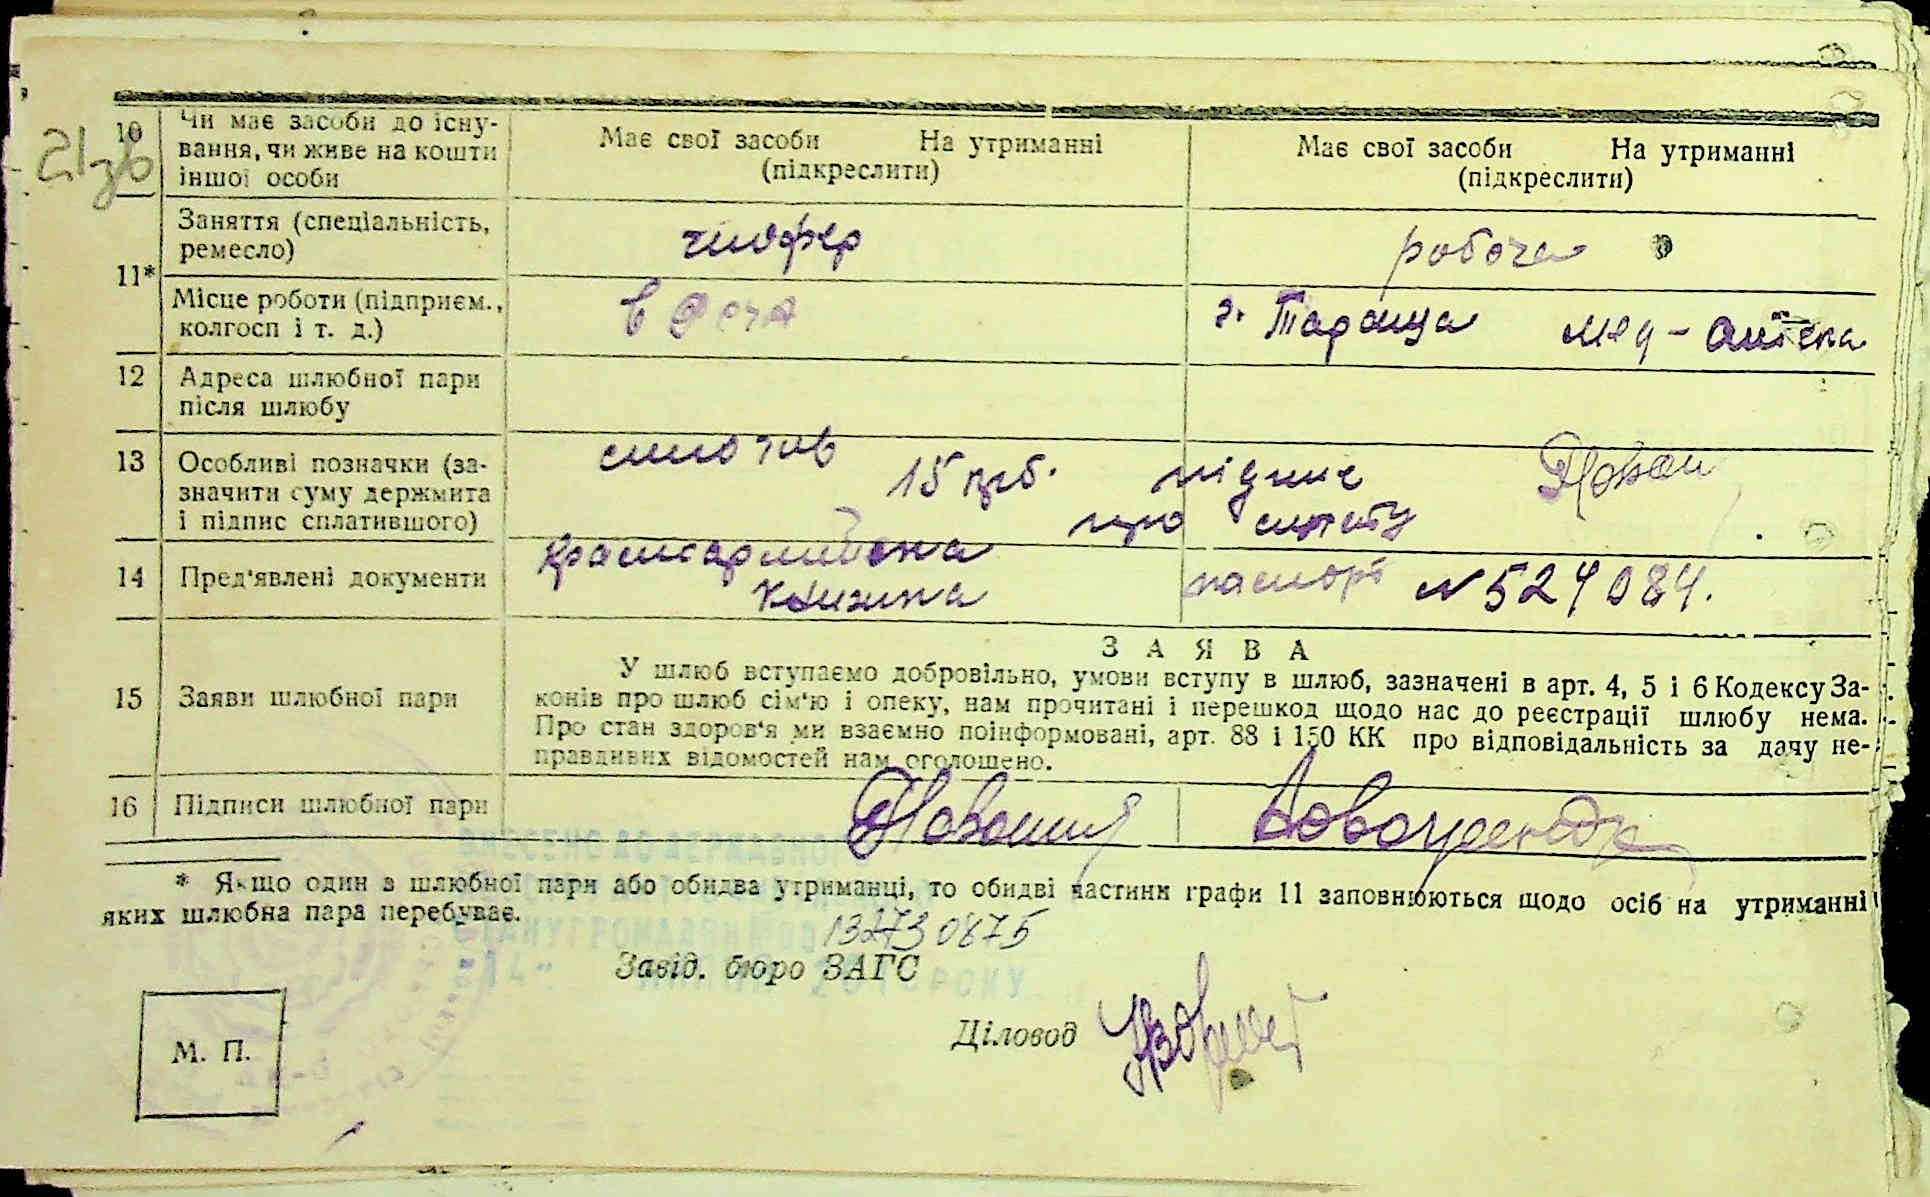 21зв
10 Чи має засоби до існу-
вання, чи живе на кошти
іншої особи
Має свої засоби На утриманні
(підкреслити)
Має свої засоби На утриманні
(підкреслити)
11*
Заняття (спеціальність,
ремесло)
шофер
робоча
Місце роботи (підприєм.,
колгосп і т. д.)
в
г. Тараща мед-аптека
12 Адреса шлюбної пари
після шлюбу
13 Особливі позначки (за-
значити суму держмита
і підпис сплатившого)
сплотив 15 крб. підпис
про сплату
14 Пред'явлені документи
Красноармійська
книжка
паспорт № 524084.
15 Заяви шлюбної пари
ЗАЯВА
У шлюб вступаємо добровільно, умови вступу в шлюб, зазначені в арт. 4, 5 і 6 Кодексу За-
конів про шлюб сім'ю і опеку, нам прочитані і перешкод щодо нас до реєстрації шлюбу нема.
Про стан здоров'я ми взаємно поінформовані, арт. 88 і 150 КК про відповідальність за дачу не-
правдивих відомостей нам оголошено.
16 Підписи шлюбної пари
ВНЕСЕНО ДО ДЕРЖАВНОГО
* Якщо один з шлюбної пари або обидва утриманці, то обидві частини графи 11 заповнюються щодо осіб на утриманні
яких шлюбна пара перебуває.
13273 0675
Завід. бюро ЗАГС
Діловод
М. П.